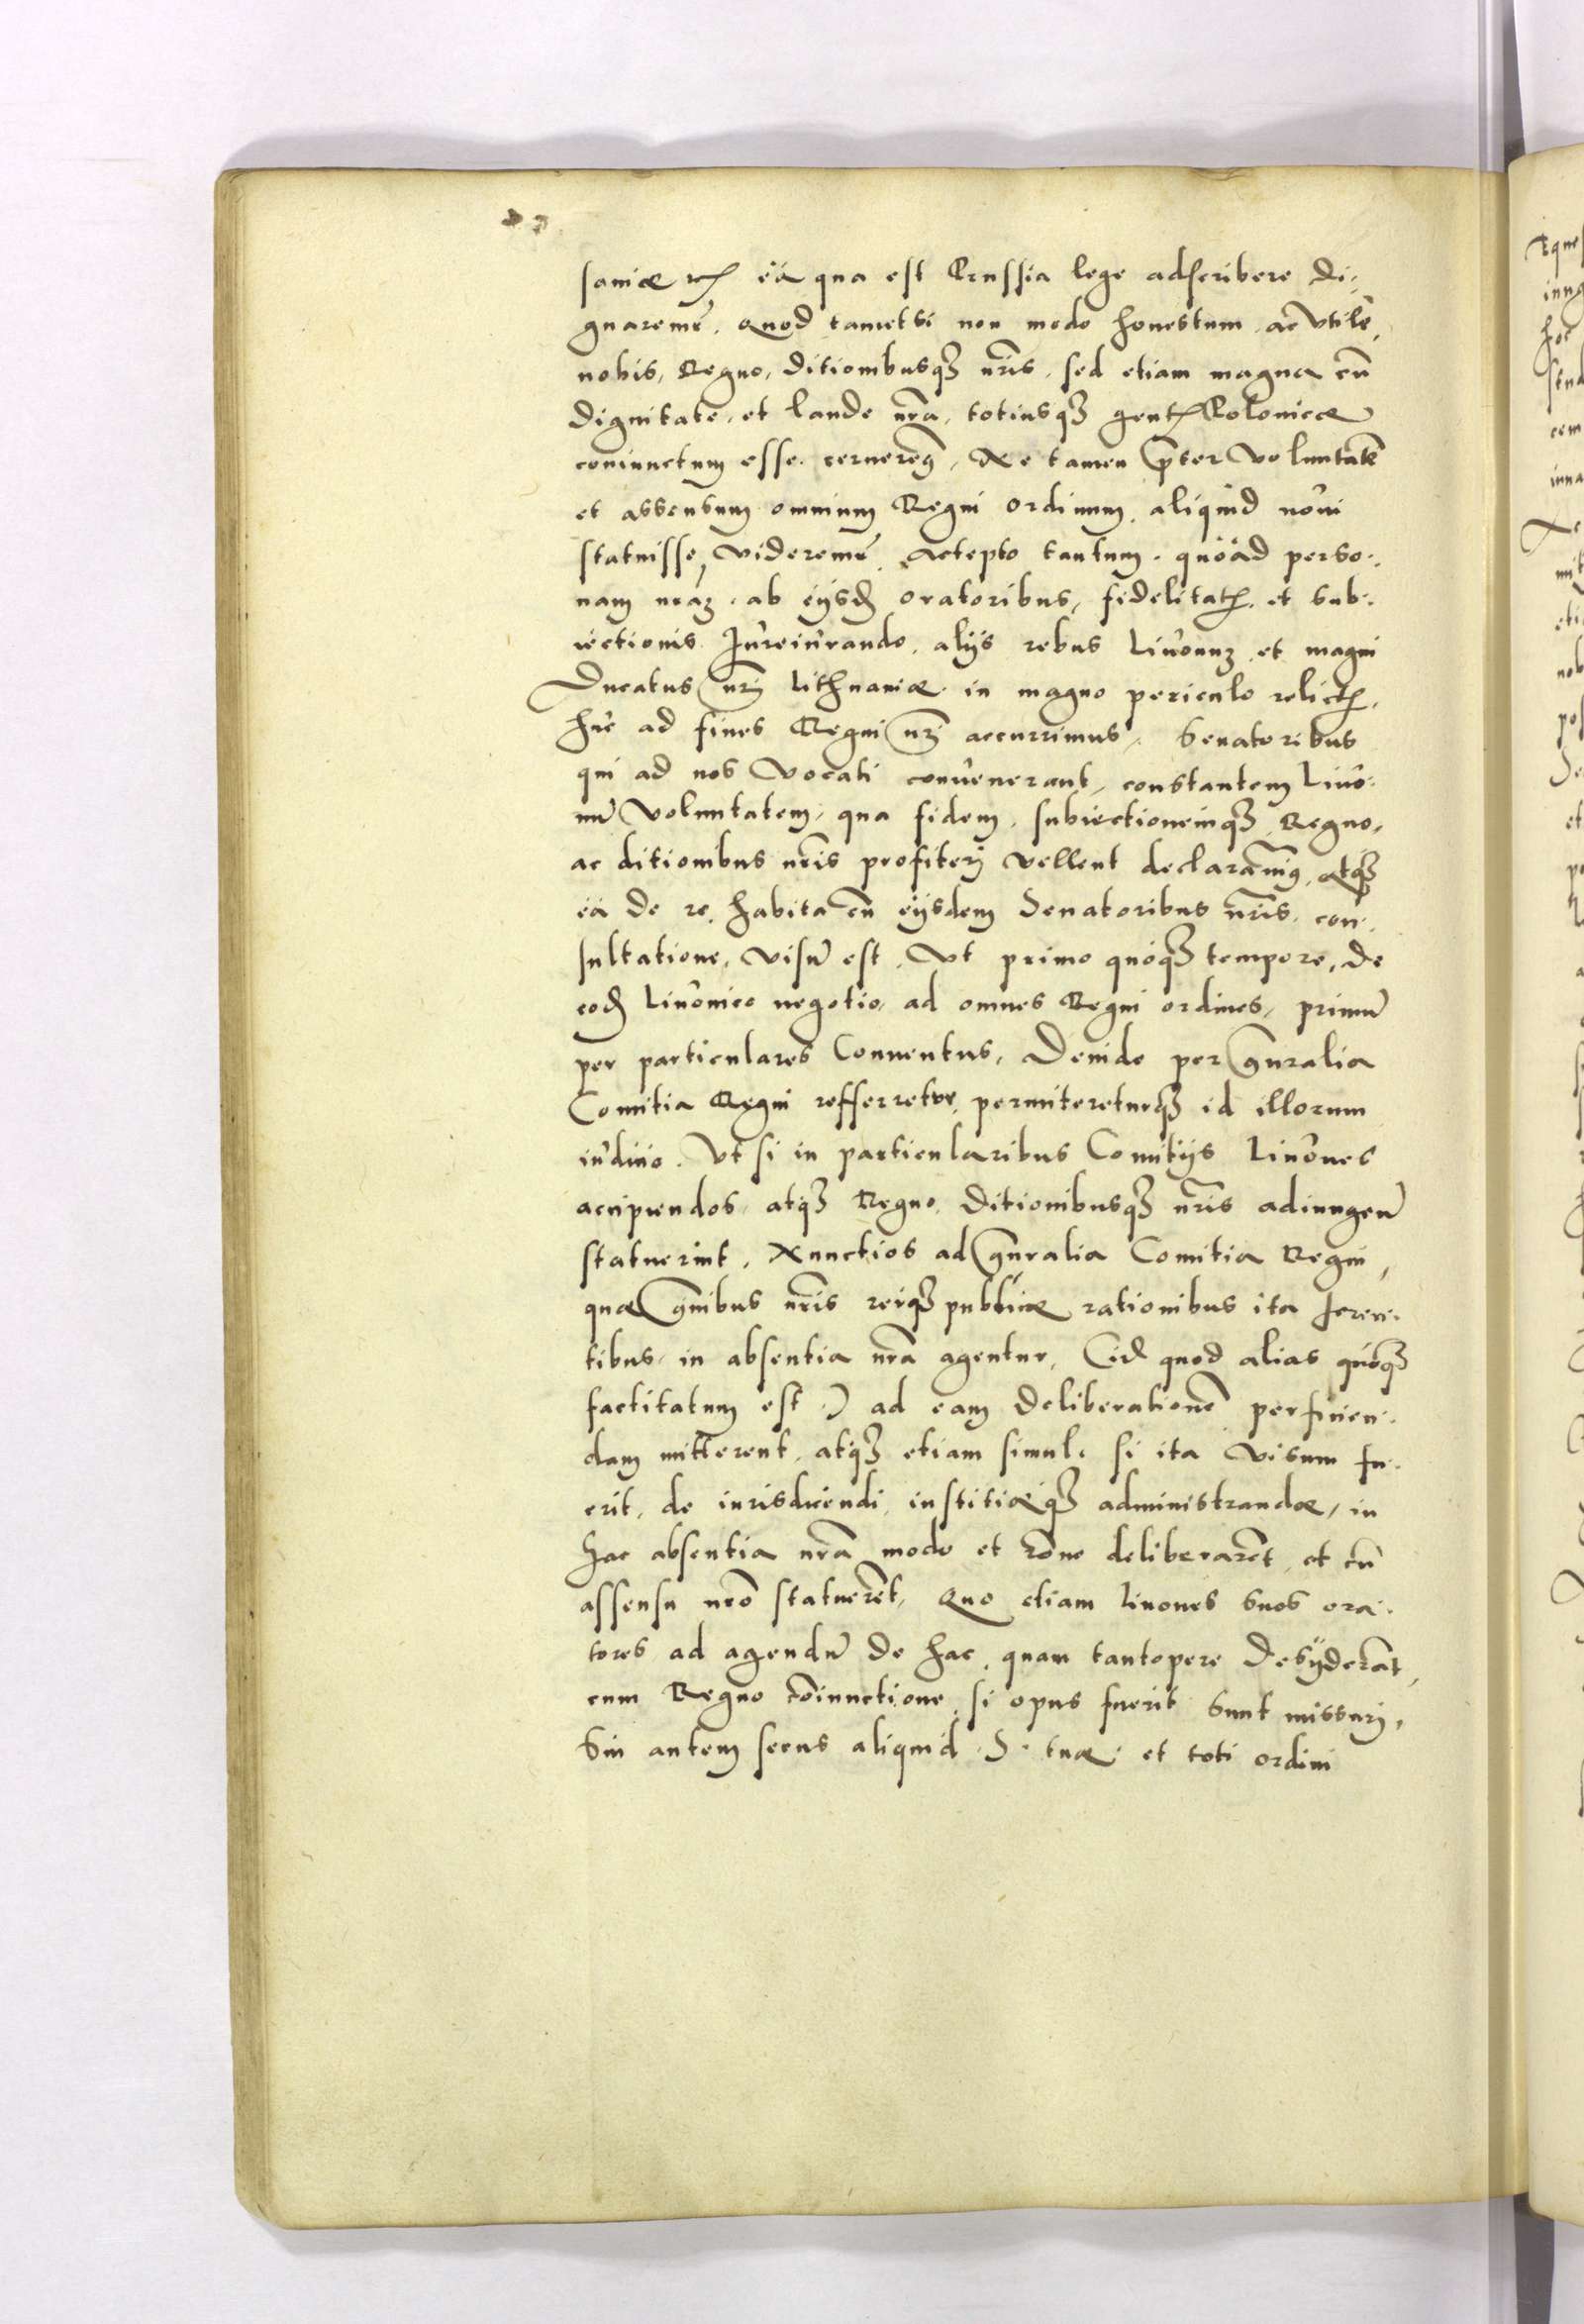 soniæ etc̃ ea qua est Prussia lege adscribere di-
gnaremur̃. Quod tametsi non modo honestum ac vtile
nobis, Regno, ditionibusq3 nr̃is, sed etiam magna cũ
dignitate, et laude nr̃a, totiusq3 gent̃ Polonicæ
coniunctum esse cernerem9, Ne tamen p̃ter voluntatẽ
et assensum omnium Regni ordinum, aliquid noui
statuisse videremur̃ Accepto tantum, quoad perso-
nam nr̃am, ab eijsd̃ oratoribus, fidelitat̃ et sub-
iectionis Iureiurando, alijs rebus Liuonum et magni
Ducatus nr̃i Lithuaniæ in magno periculo relict̃,
huc ad fines Regni nr̃i accurrimus, Senatoribus
qui ad nos vocati conuenerant, constantem Liuo-
nũ voluntatem, qua fidem, subiectionemq3 Regno,
ac ditionibus nr̃is profiteri vellent declarauim9, atq3
ea de re, habita cũ eijsdem Senatoribus nr̃is con-
sultatione, visũ est, Vt primo quoq3 tempore, de
eod̃ Liuonico negotio, ad omnes Regni ordines, primũ
per particulares Conuentus, Deinde per gñralia
Comitia Regni refferretur, permitereturq3 id illorum
iudicio. Vt si in particularibus Comitijs Liuones
accipiendos, atq3 Regno, ditionibusq3 nr̃is adiungen̄
statuerint, Nunctios ad gñralia Comitia Regni,
quæ omnibus nr̃is reiq3 publicæ rationibus ita feren-
tibus, in absentia nr̃a agentur, (id quod alias quoq3
factitatum est) ad eam deliberationẽ perficien-
dam mitterent, atq3 etiam simul, si ita visum fu-
erit, de iurisdicendi, iustitiæq3 administrandæ, in
hac absentia nr̃a modo et rõne deliberarẽt, et cũ
assensu nr̃o statuerẽt, Quo etiam Liuones suos ora-
tores ad agendũ de hac, quam tantopere desyderãt,
cum Regno cõiunctione, si opus fuerit sunt missuri,
Sin autem secus aliquid S. tuæ et toti ordini